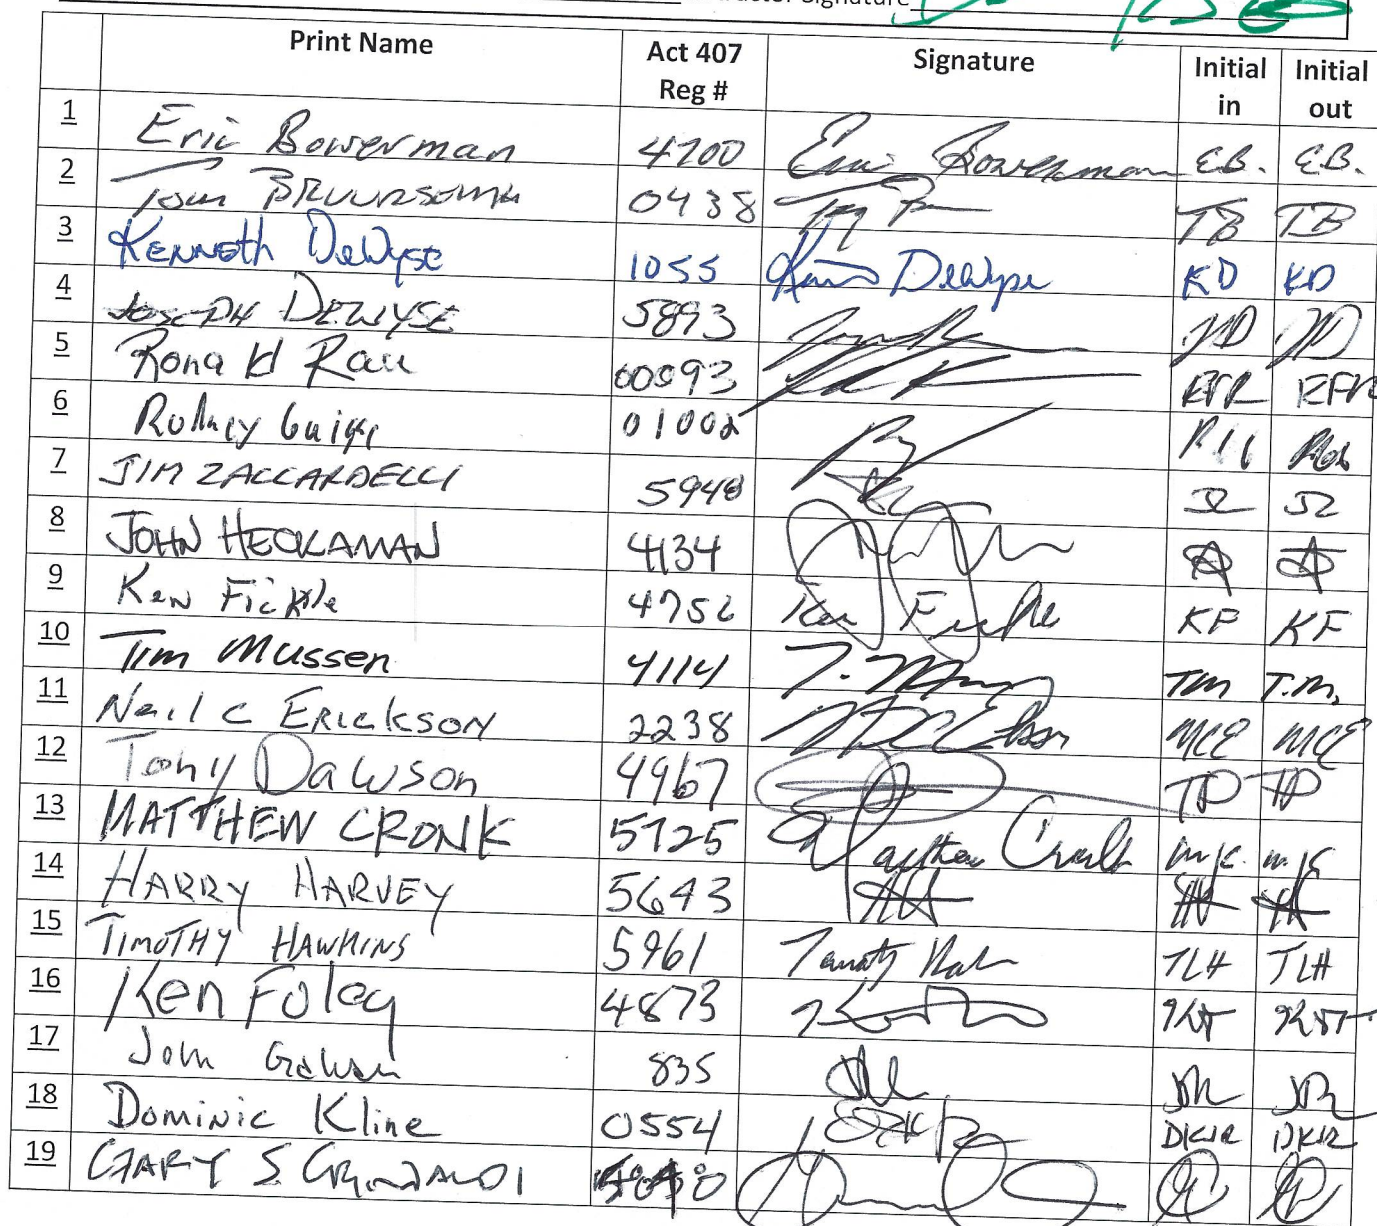 Signature
Print Name Act 407 Reg # Signature Initial in Initial out
1 Eric Bowerman 4700 Eric Bowerman E.B. E.B.
2 Tom BRUURSEMA 0438 TB TB
3 KENNETH DeWyse 1055 Ken DeWyse KD KD
4 JOSEPH DEWYSE 5893 JD JD
5 Ronald Rau 00093 RFR RFR
6 Rodney 01002
7 JIM ZACCARDELLI 5948 JZ JZ
8 JOHN HECKAMAN 4134
9 Ken Fickle 4752 Ken Fickle KF KF
10 Tim Mussen 4114 T. TM T.M.
11 Neil C ERICKSON 2238 NCE NCE
12 Tony Dawson 4967 TD TD
13 MATTHEW CRONK 5725 Matthew Cronk m.c. m.c.
14 HARRY HARVEY 5643 HH HH
15 TIMOTHY HAWKINS 5961 TLH TLH
16 Ken Foley 4873
17 John 835
18 Dominic Kline 0554 DKJR DKJR
19 GARY S GRIMALDI